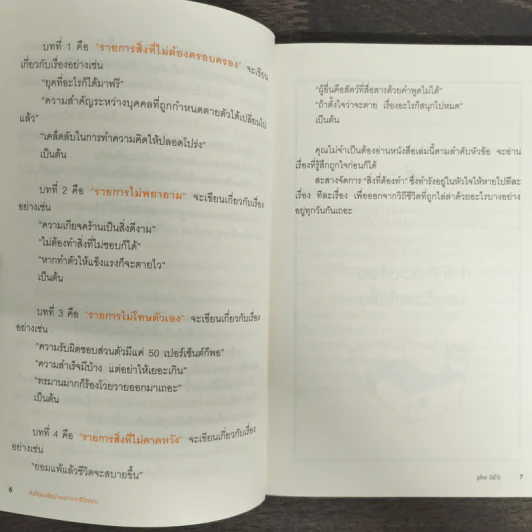 บทที่ 1 คือ "รายการสิ่งที่ไม่ต้องครอบครอง" จะเขียน
เกี่ยวกับเรื่องอย่างเช่น
"ยุคที่อะไรก็ได้มาฟรี"
"ความสำคัญระหว่างบุคคลที่ถูกกำหนดตายตัวได้เปลี่ยนไป
แล้ว"
"เคล็ดลับในการทำความคิดให้ปลอดโปร่ง"
เป็นต้น
บทที่ 2 คือ "รายการไม่พยายาม" จะเขียนเกี่ยวกับเรื่อง
อย่างเช่น
"ความเกียจคร้านเป็นสิ่งดีงาม"
"ไม่ต้องทำสิ่งที่ไม่ชอบก็ได้"
"หากทำตัวให้แข็งแรงก็จะตายไว"
เป็นต้น
บทที่ 3 คือ "รายการไม่โทษตัวเอง" จะเขียนเกี่ยวกับเรื่อง
อย่างเช่น
"ความรับผิดชอบส่วนตัวมีแค่ 50 เปอร์เซ็นต์ก็พอ"
"ความสำเร็จมีบ้าง แต่อย่าให้เยอะเกิน"
"ทรมานมากก็ร้องโวยวายออกมาเถอะ"
เป็นต้น
บทที่ 4 คือ "รายการสิ่งที่ไม่คาดหวัง" จะเขียนเกี่ยวกับเรื่อง
อย่างเช่น
"ยอมแพ้แล้วชีวิตจะสบายขึ้น"
6
"ผู้อื่นคือสัตว์ที่สื่อสารด้วยคำพูดไม่ได้"
"ถ้าตั้งใจว่าจะตาย เรื่องอะไรก็สนุกไปหมด"
เป็นต้น
คุณไม่จำเป็นต้องอ่านหนังสือเล่มนี้ตามลำดับหัวข้อ จะอ่าน
เรื่องที่รู้สึกถูกใจก่อนก็ได้
สะสางจัดการ "สิ่งที่ต้องทำ" ซึ่งทำรังอยู่ในหัวใจให้หายไปทีละ
เรื่อง ทีละเรื่อง เพื่อออกจากวิถีชีวิตที่ถูกไล่ล่าด้วยอะไรบางอย่าง
อยู่ทุกวันกันเถอะ
pha (ฟา) 7